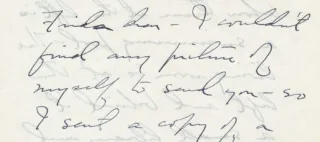 Frida dear - I couldn't
find any picture of
myself to send you - so
I sent a copy of a